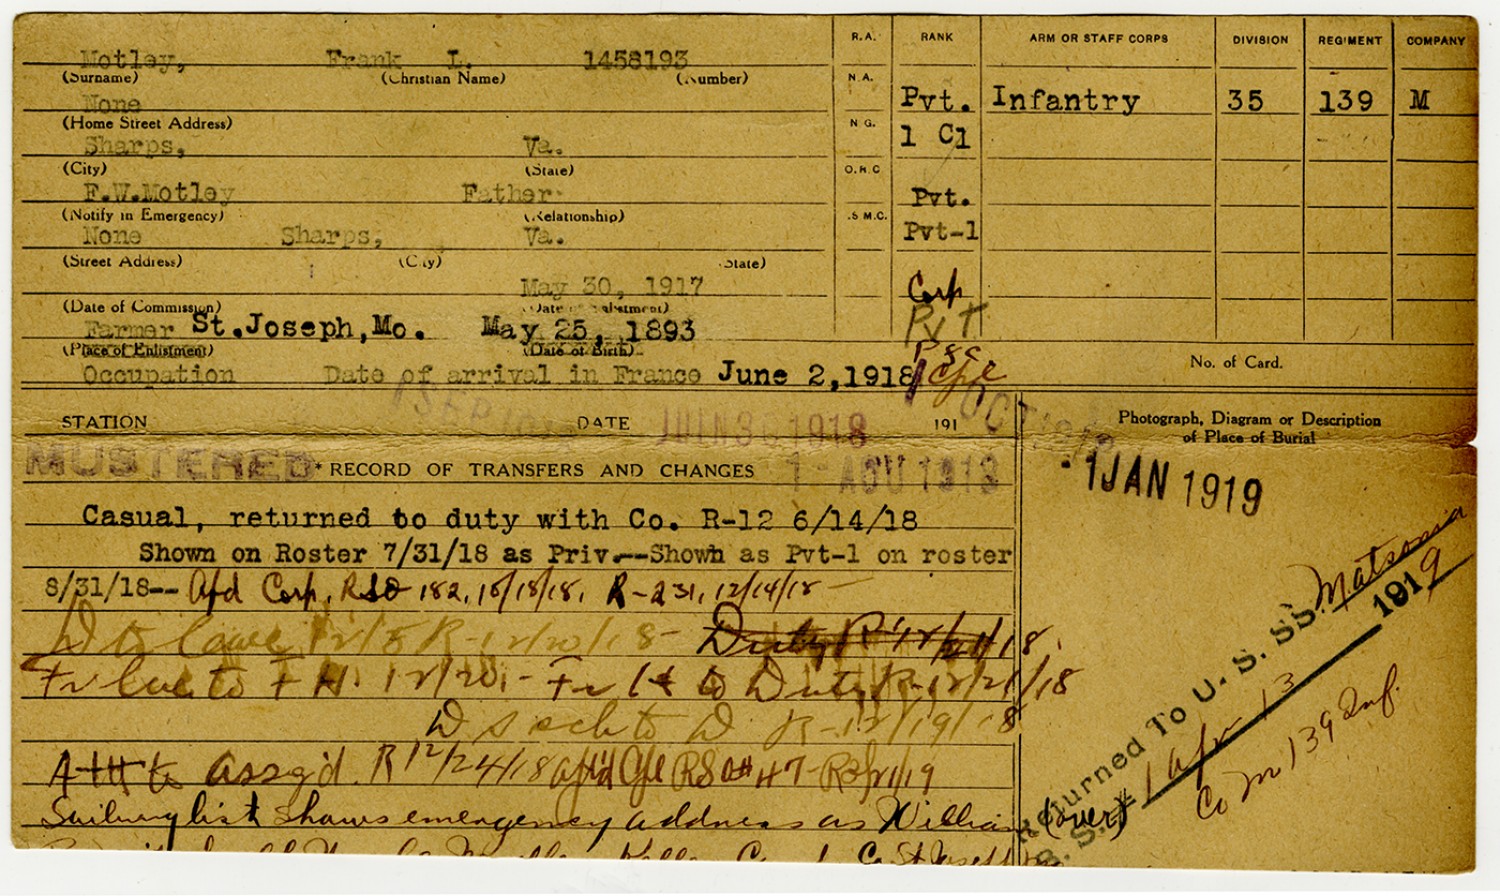 Motley, Frank L. 1458193
(Surname) (Christian Name) (Number)
None
(Home Street Address)
Sharps, Va.
(City) (State)
F.W.Motley Father
(Notify in Emergency) (Relationship)
None Sharps, Va.
(Street Address) (City) (State)
May 30, 1917
(Date of Commission) (Date of Enlistment)
Farmer St.Joseph,Mo. May 25, 1893
(Place of Enlistment) (Date of Birth)
Occupation Date of arrival in France June 2,1918
R.A. RANK ARM OR STAFF CORPS DIVISION REGIMENT COMPANY
N.A. Pvt. Infantry 35 139 M
N G. 1 Cl
O.R.C Pvt.
.S M.C. Pvt-1
Corp
Pvt
No. of Card.
STATION DATE 191
JUIN 3 1918
MUSTERED * RECORD OF TRANSFERS AND CHANGES
1 - AOU 1918
Casual, returned to duty with Co. R-12 6/14/18
Shown on Roster 7/31/18 as Priv.--Shown as Pvt-1 on roster
8/31/18-- Apd Corp, RSO 182, 10/18/18, R-231, 12/14/18
Duty R 12/21/18,
12/20, - to Duty R-12/21/18
to D R-12/19/18
Att to assg'd. R 12/24/18 aptd Cpl RSO# 47- R 2/21/19
Sailing list shows emergency address as William (over)
Photograph, Diagram or Description
of Place of Burial
- 1 JAN 1919
Returned To U. S. SS. Matsonia
1 Apr 13 1919
Co M 139 Inf.